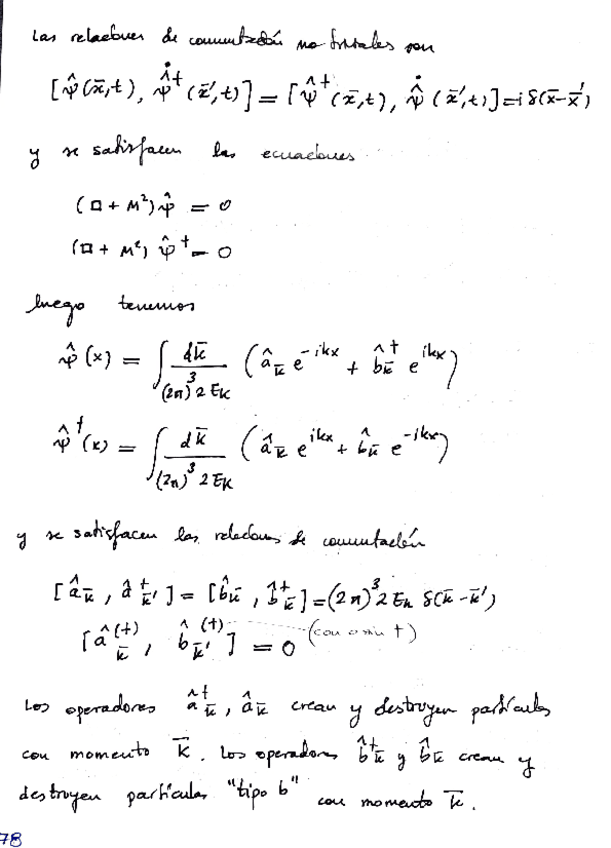 Las relaciones de conmutación no triviales son
[ψ̂(x̄,t), ψ̂̇†(x̄',t)] = [ψ̂†(x̄,t), ψ̂̇(x̄',t)] = i δ(x̄-x̄')
y se satisfacen las ecuaciones
(□ + M²) ψ̂ = 0
(□ + M²) ψ̂† = 0
luego tenemos
ψ̂(x) = ∫ dk̄ / (2π)³ 2E_k ( â_k̄ e^{-ikx} + b̂†_k̄ e^{ikx} )
ψ̂†(x) = ∫ dk̄ / (2π)³ 2E_k ( â_k̄ e^{ikx} + b̂_k̄ e^{-ikx} )
y se satisfacen las relaciones de conmutación
[â_k̄, â†_k̄'] = [b̂_k̄, b̂†_k̄] = (2π)³ 2E_k δ(k̄-k̄')
[â^(†)_k̄, b̂^(†)_k̄'] = 0 (con o sin †)
Los operadores â†_k̄, â_k̄ crean y destruyen partículas
con momento k̄. Los operadores b̂†_k̄ y b̂_k̄ crean y
destruyen partículas "tipo b" con momento k̄.
78